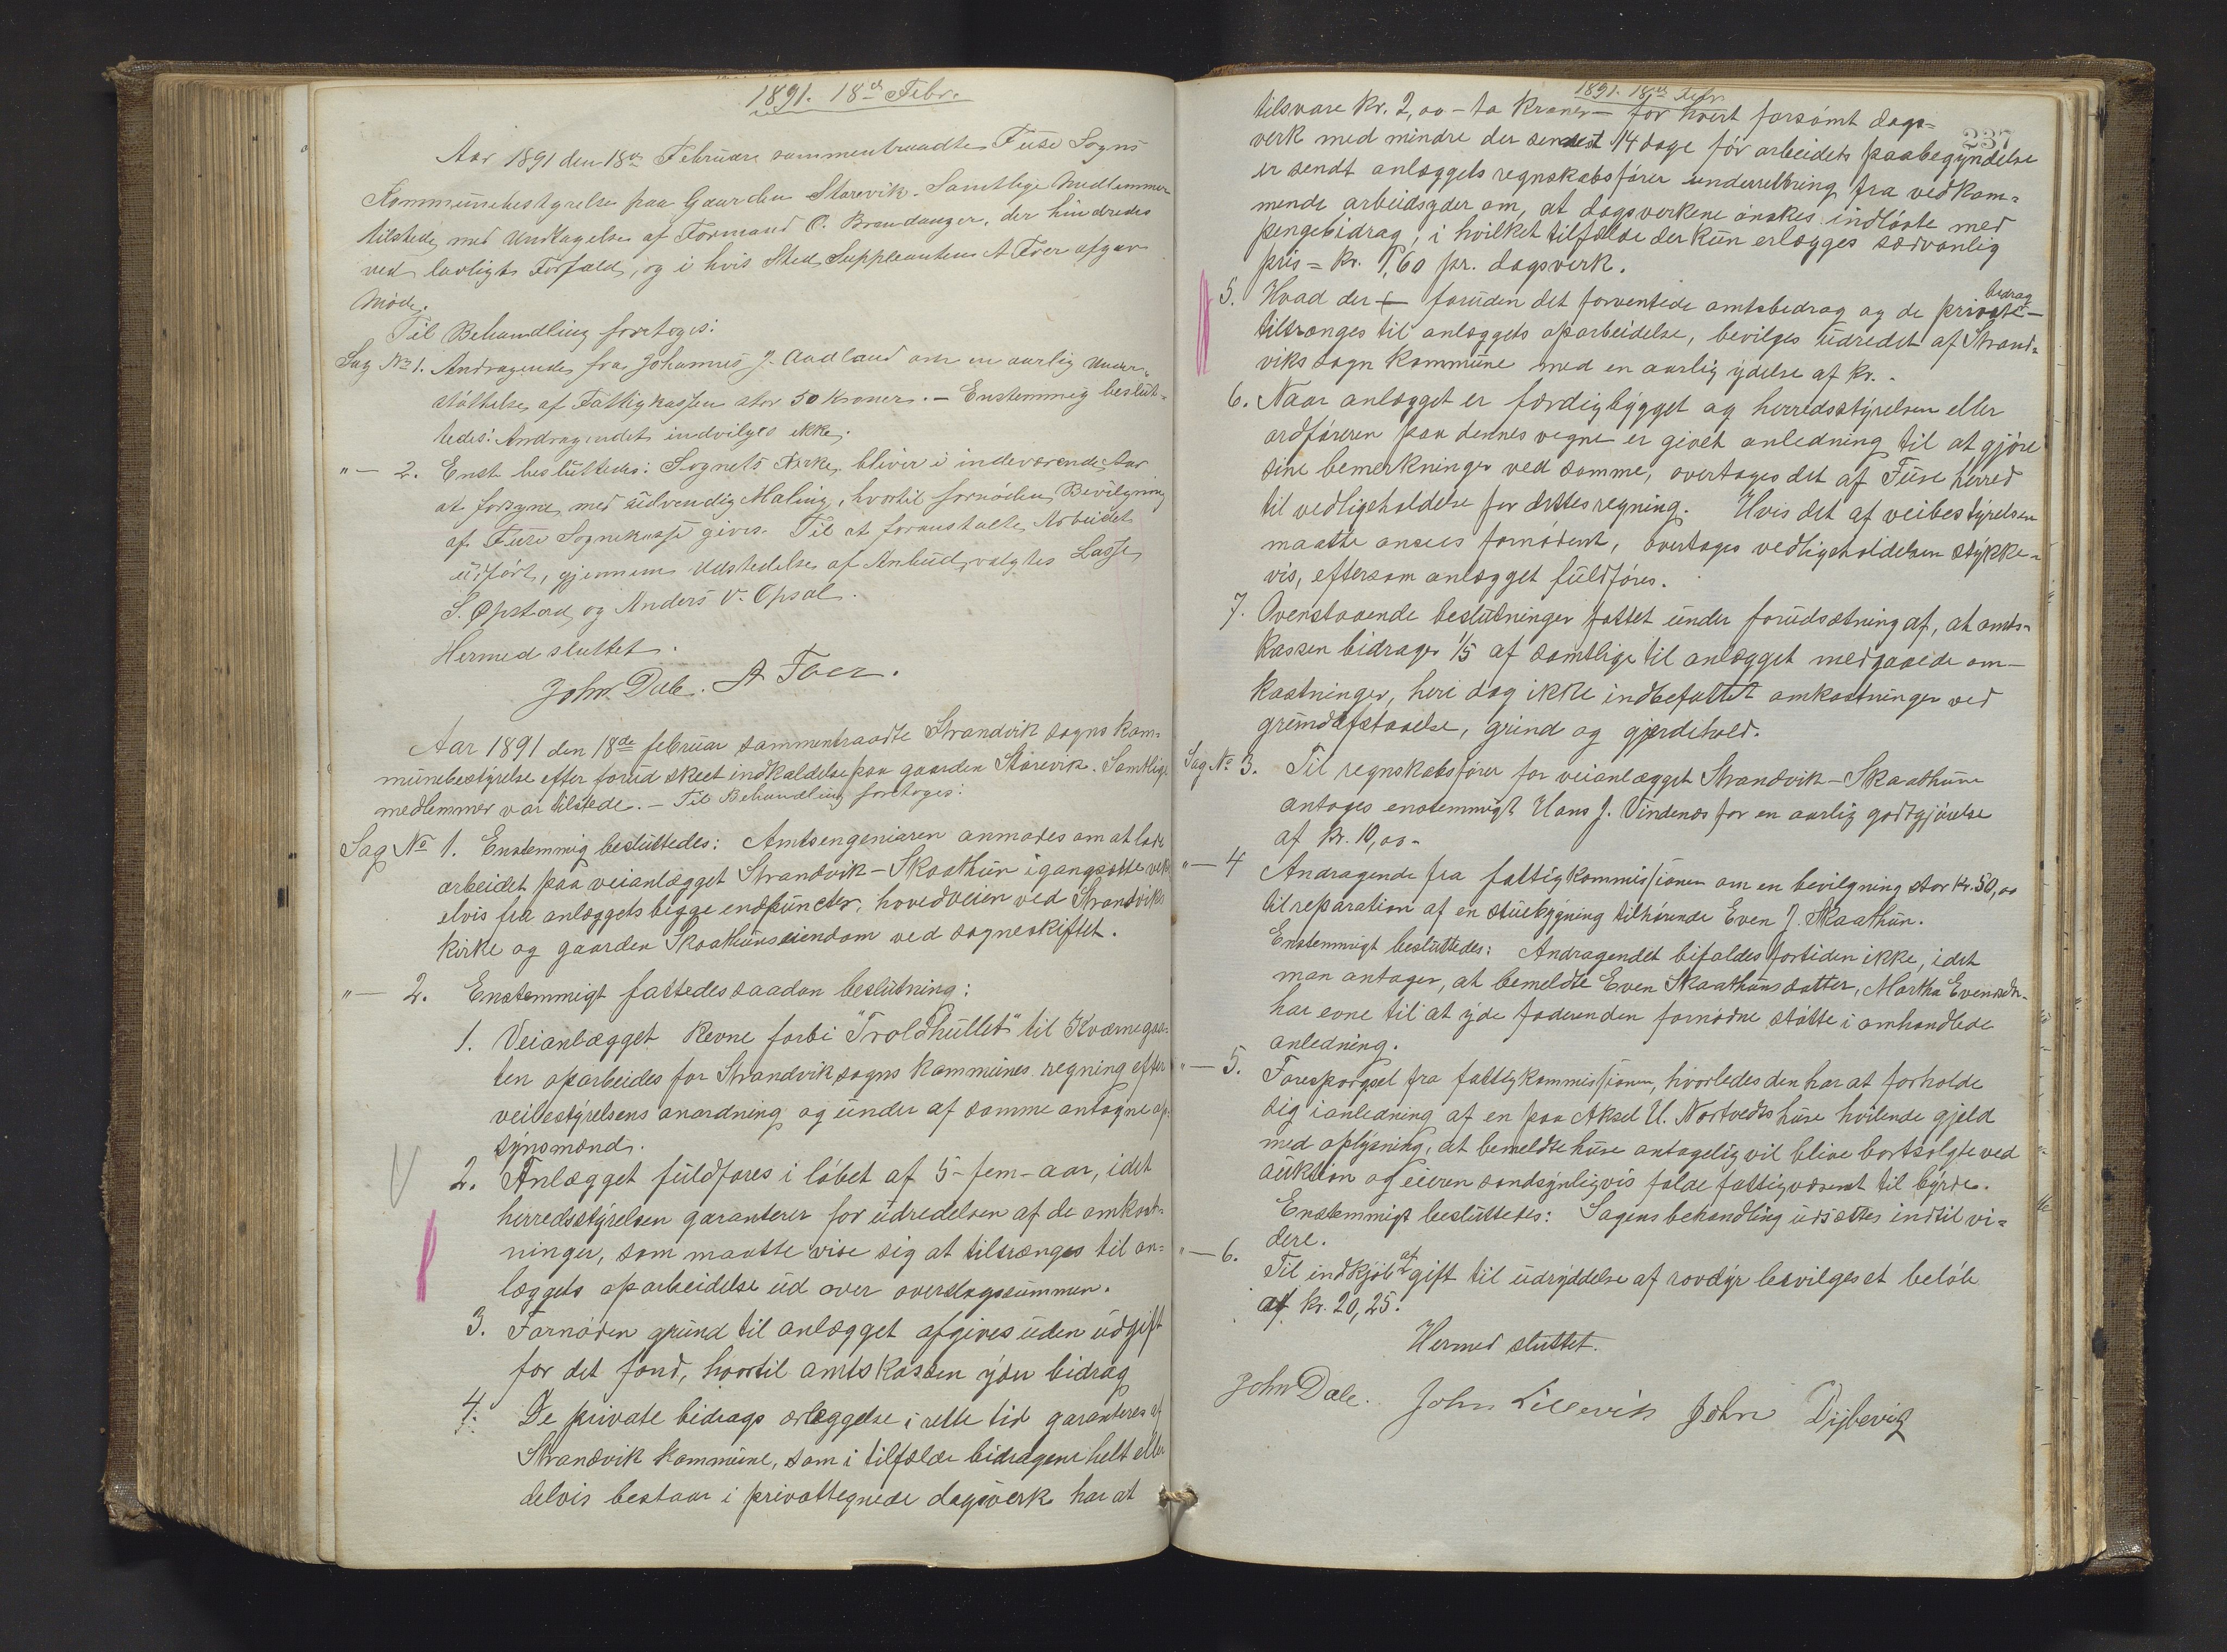 1891. 18de Febr.
Aar 1891 den 18de Februar sammentraadte Fuse Sogns
Kommunebestyrelse paa Gaarden Storevik. Samtlige Medlemmer
tilstede, med Undtagelse af Formand O. Brandanger, der hindredes
ved lovligt Forfald, og i hvis Sted Suppleanten A Foer afgav
Møde.
Til Behandling foretoges:
Sag No 1. Andragende fra Johannes J. Aadland om en aarlig Under-
støttelse af Fattigkassen stor 50 Kroner. — Enstemmig beslut-
tedes: Andragendet indvilges ikke.
"— 2. Enst. besluttedes: Sognets Kirke bliver i indeværende Aar
at forsyne med udvendig Maling, hvortil fornøden Bevilgning
af Fuse Sognekasse gives. Til at foranstalte Arbeidet
udført, gjennem Udstedelse af Anbud, valgtes Lasse
S. Opstad og Anders V. Opsal.
Hermed sluttet.
John Dale. A Foer.
Aar 1891 den 18de februar sammentraadte Strandvik sogns kom-
munebestyrelse efter forud skeet indkaldelse paa gaarden Storevik. Samtlige
medlemmer var tilstede. — Til Behandling foretoges:
Sag No 1. Enstemmig besluttedes: Amtsengeniøren anmodes om at lade
arbeidet paa veianlægget Strandvik - Skaathun igangsætte veks
elvis fra anlæggets begge endpuncter, hovedveien ved Strandviks
kirke og gaarden Skaathuns eiendom ved sogneskiftet.
"— 2. Enstemmigt fattedes saadan beslutning:
1. Veianlægget Revne forbi "Troldhullet" til Kværnegaa-
ten oparbeides for Strandvik sogns kommunes regning efter
veibestyrelsens anordning og under af samme antagne op-
synsmænd.
2. Anlægget fuldføres i løbet af 5 - fem - aar, idet
herredsstyrelsen garanterer for udredelsen af de omkost-
ninger, som maatte vise sig at tiltrænges til an-
læggets oparbeidelse ud over overslagssummen.
3. Fornøden grund til anlægget afgives uden udgift
for det fond, hvortil amtskassen yder bidrag
4. De private bidrags erlæggelse i rette tid garanteres af
Strandvik kommune, som i tilfælde bidragene helt eller
delvis bestaar i privattegnede dagsverk har at
1891. 18de Febr
237
tilsvare kr. 2,00 - to kroner - for hvert forsømt dags-
verk med mindre der senest 14 dage før arbeidets paabegyndelse
er sendt anlæggets regnskabsfører underretning fra vedkom-
mende arbeidsyder om, at dagsverkene ønskes indløste med
pengebidrag, i hvilket tilfælde der kun erlægges sædvanlig
pris = kr. 1,60 pr. dagsverk.
5. Hvad der — foruden det forventede amtsbidrag og de private bidrag —
tiltrænges til anlæggets oparbeidelse, bevilges udredet af Strand-
viks sogn kommune med en aarlig ydelse af kr. -
6. Naar anlægget er færdigbygget og herredsstyrelsen eller
ordføreren paa dennes vegne er givet anledning til at gjøre
sine bemerkninger ved samme, overtages det af Fuse herred
til vedligeholdelse for dettes regning. Hvis det af veibestyrelsen
maatte ansees fornødent, overtages vedligeholdelsen stykke-
vis, eftersom anlægget fuldføres.
7. Ovenstaaende beslutninger fattet under forudsætning af, at amts-
kassen bidrager 1/5 af samtlige til anlægget medgaaede om-
kostninger, heri dog ikke indbefattet omkostninger ved
grundafstaaelse, grind og gjerdehold.
Sag No 3. Til regnskabsfører for veianlægget Strandvik - Skaathun
antages enstemmigt Hans J. Vindenes for en aarlig godtgjørelse
af kr. 10,00 -
"— 4 Andragende fra fattigkommissionen om en bevilgning stor kr. 50,00
til reparation af en stuebygning tilhørende Even J. Skaathun.
Enstemmigt besluttedes: Andragendet bifaldes fortiden ikke, idet
man antager, at bemeldte Even Skaathuns datter, Martha Evensdtr.
har evne til at yde faderen den fornødne støtte i omhandlede
anledning.
"— 5. Forespørgsel fra fattigkommissionen, hvorledes den har at forholde
sig i anledning af en paa Aksel U. Nortvedts huse hvilende gjeld
med oplysning, at bemeldte huse antagelig vil blive bortsolgte ved
auktion og eieren sandsynligvis falde fattigvæsenet til byrde.
Enstemmigt besluttedes: Sagens behandling udsættes indtil vi-
dere.
"— 6. Til indkjøb af gift til udryddelse af rovdyr bevilges et beløb
af kr. 20,25.
Hermed sluttet.
John Dale. John Lillevik John Dijbevig